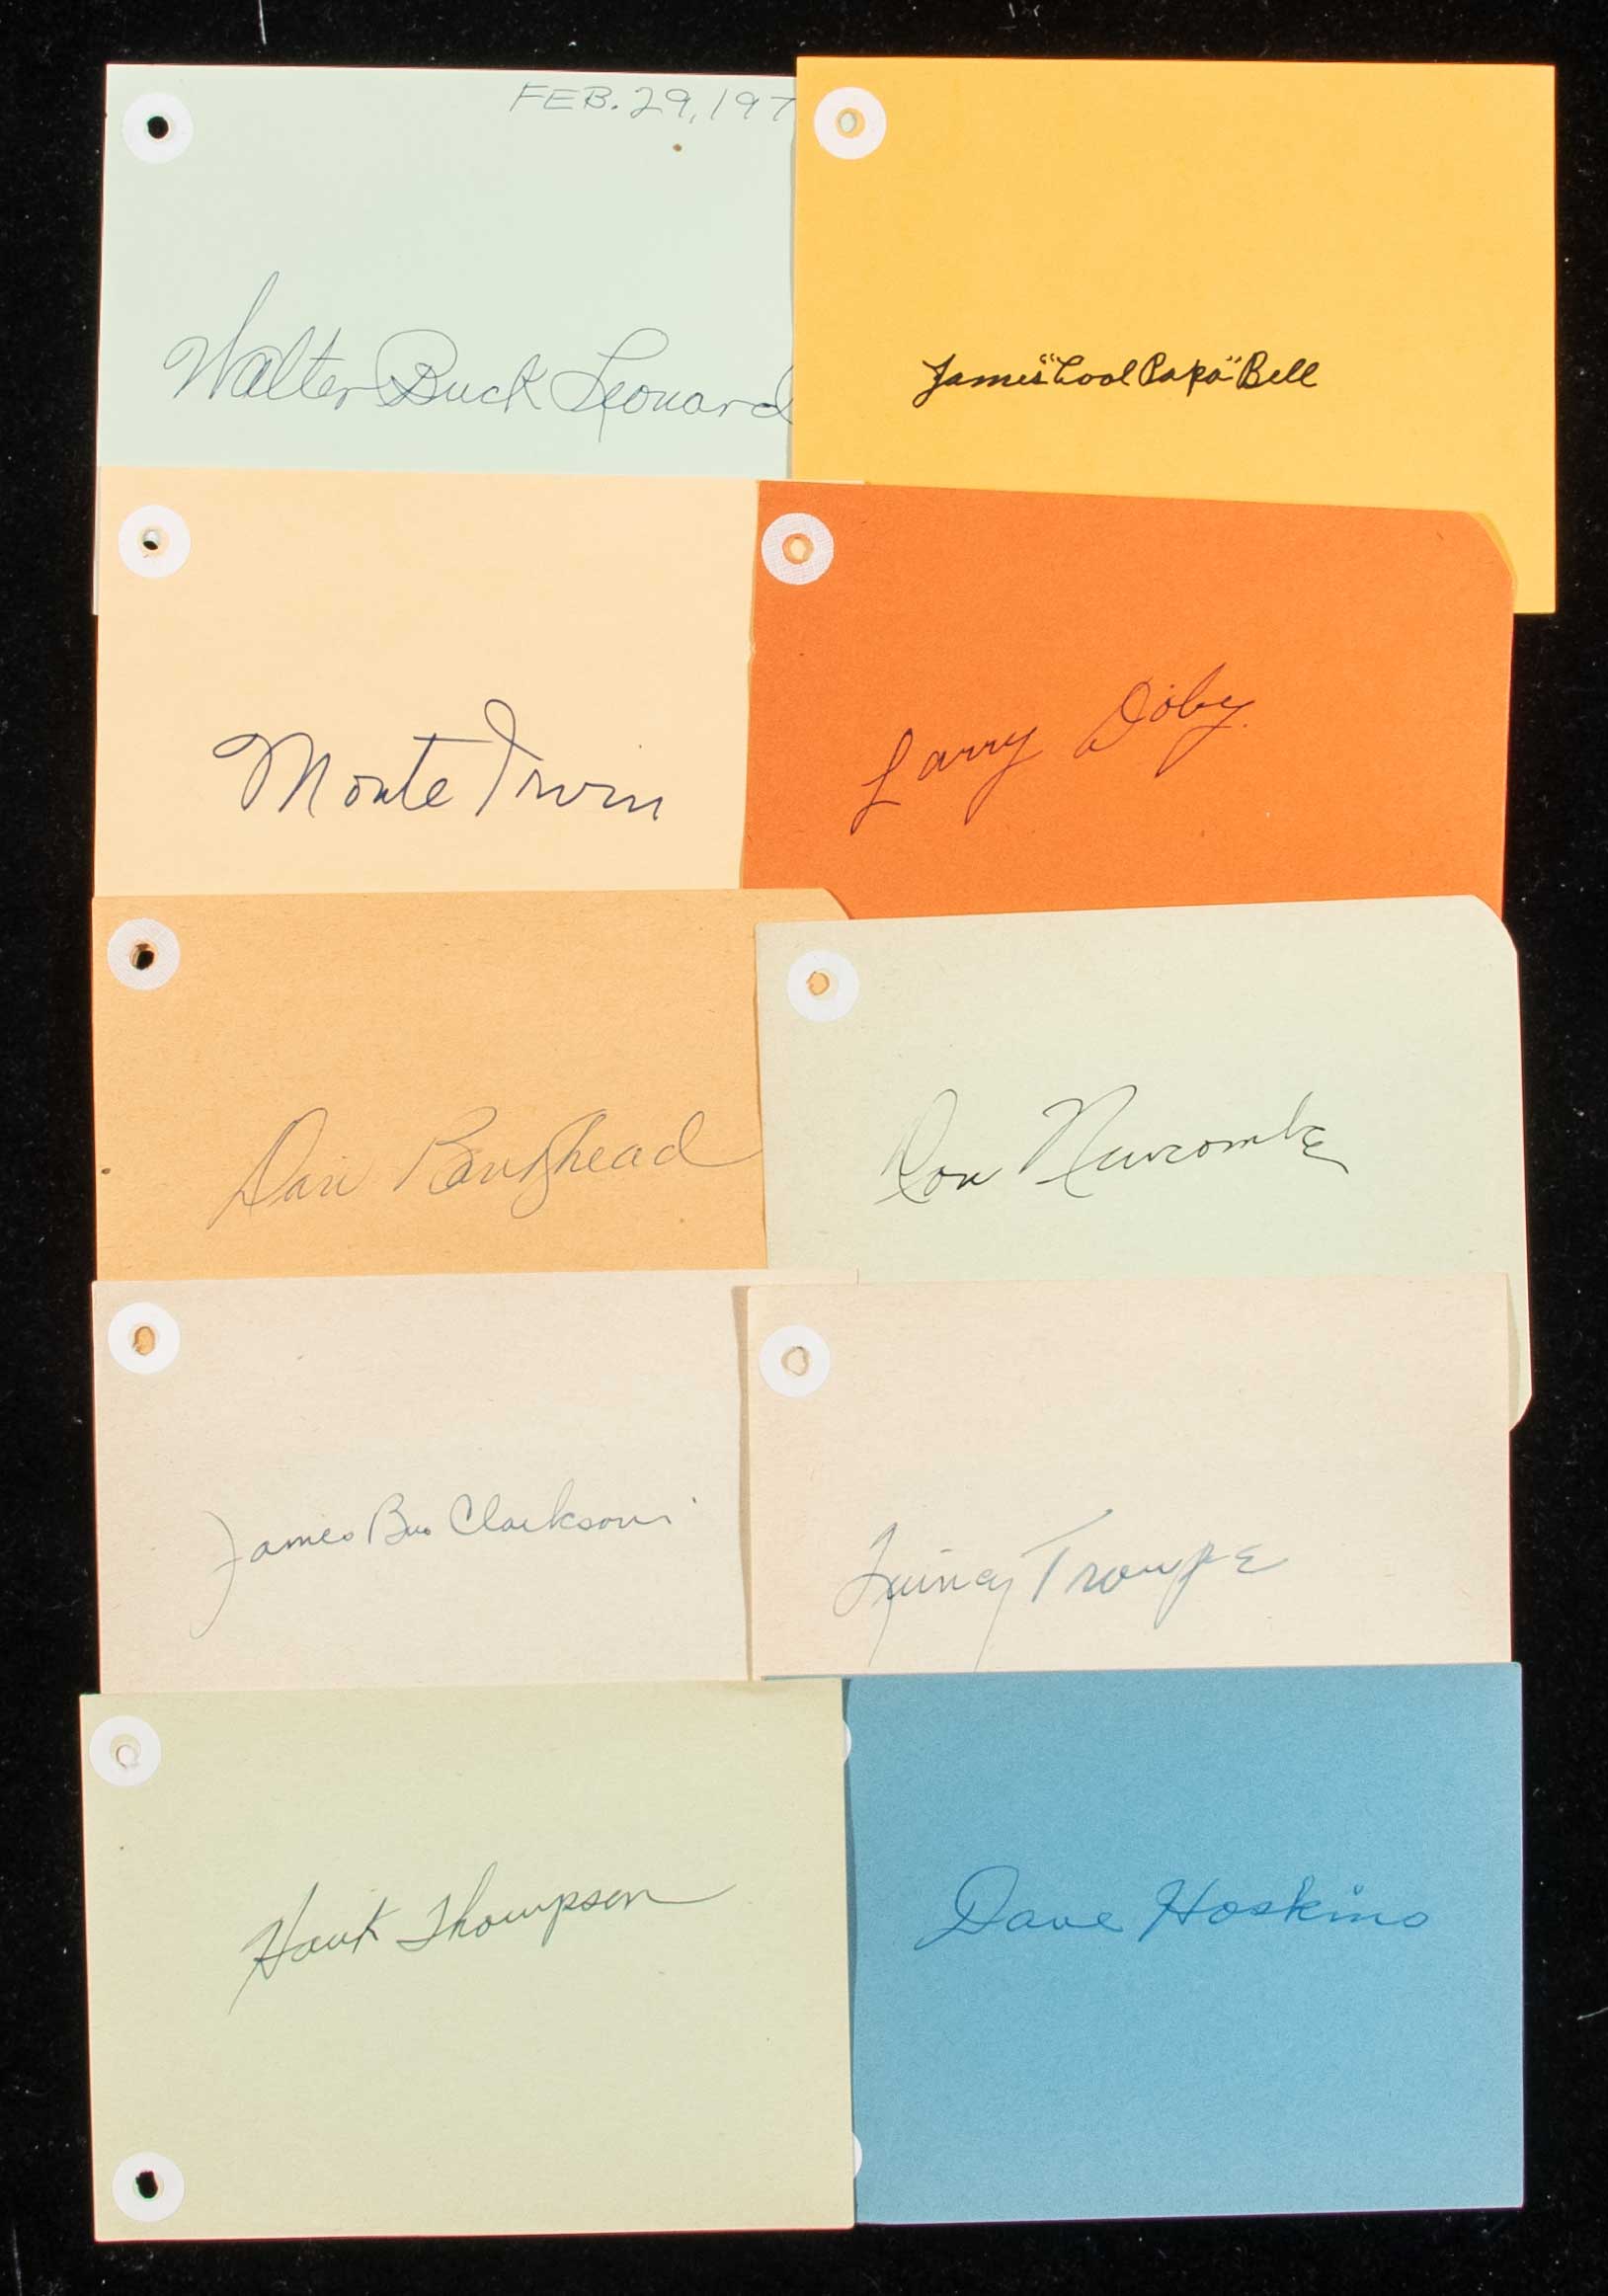 FEB. 29, 197
Walter Buck Leonard
James "Cool Papa" Bell
Monte Irvin
Larry Doby
Dan Bankhead
Don Newcombe
James Bus Clarkson
Quincy Trouppe
Hank Thompson
Dave Hoskins